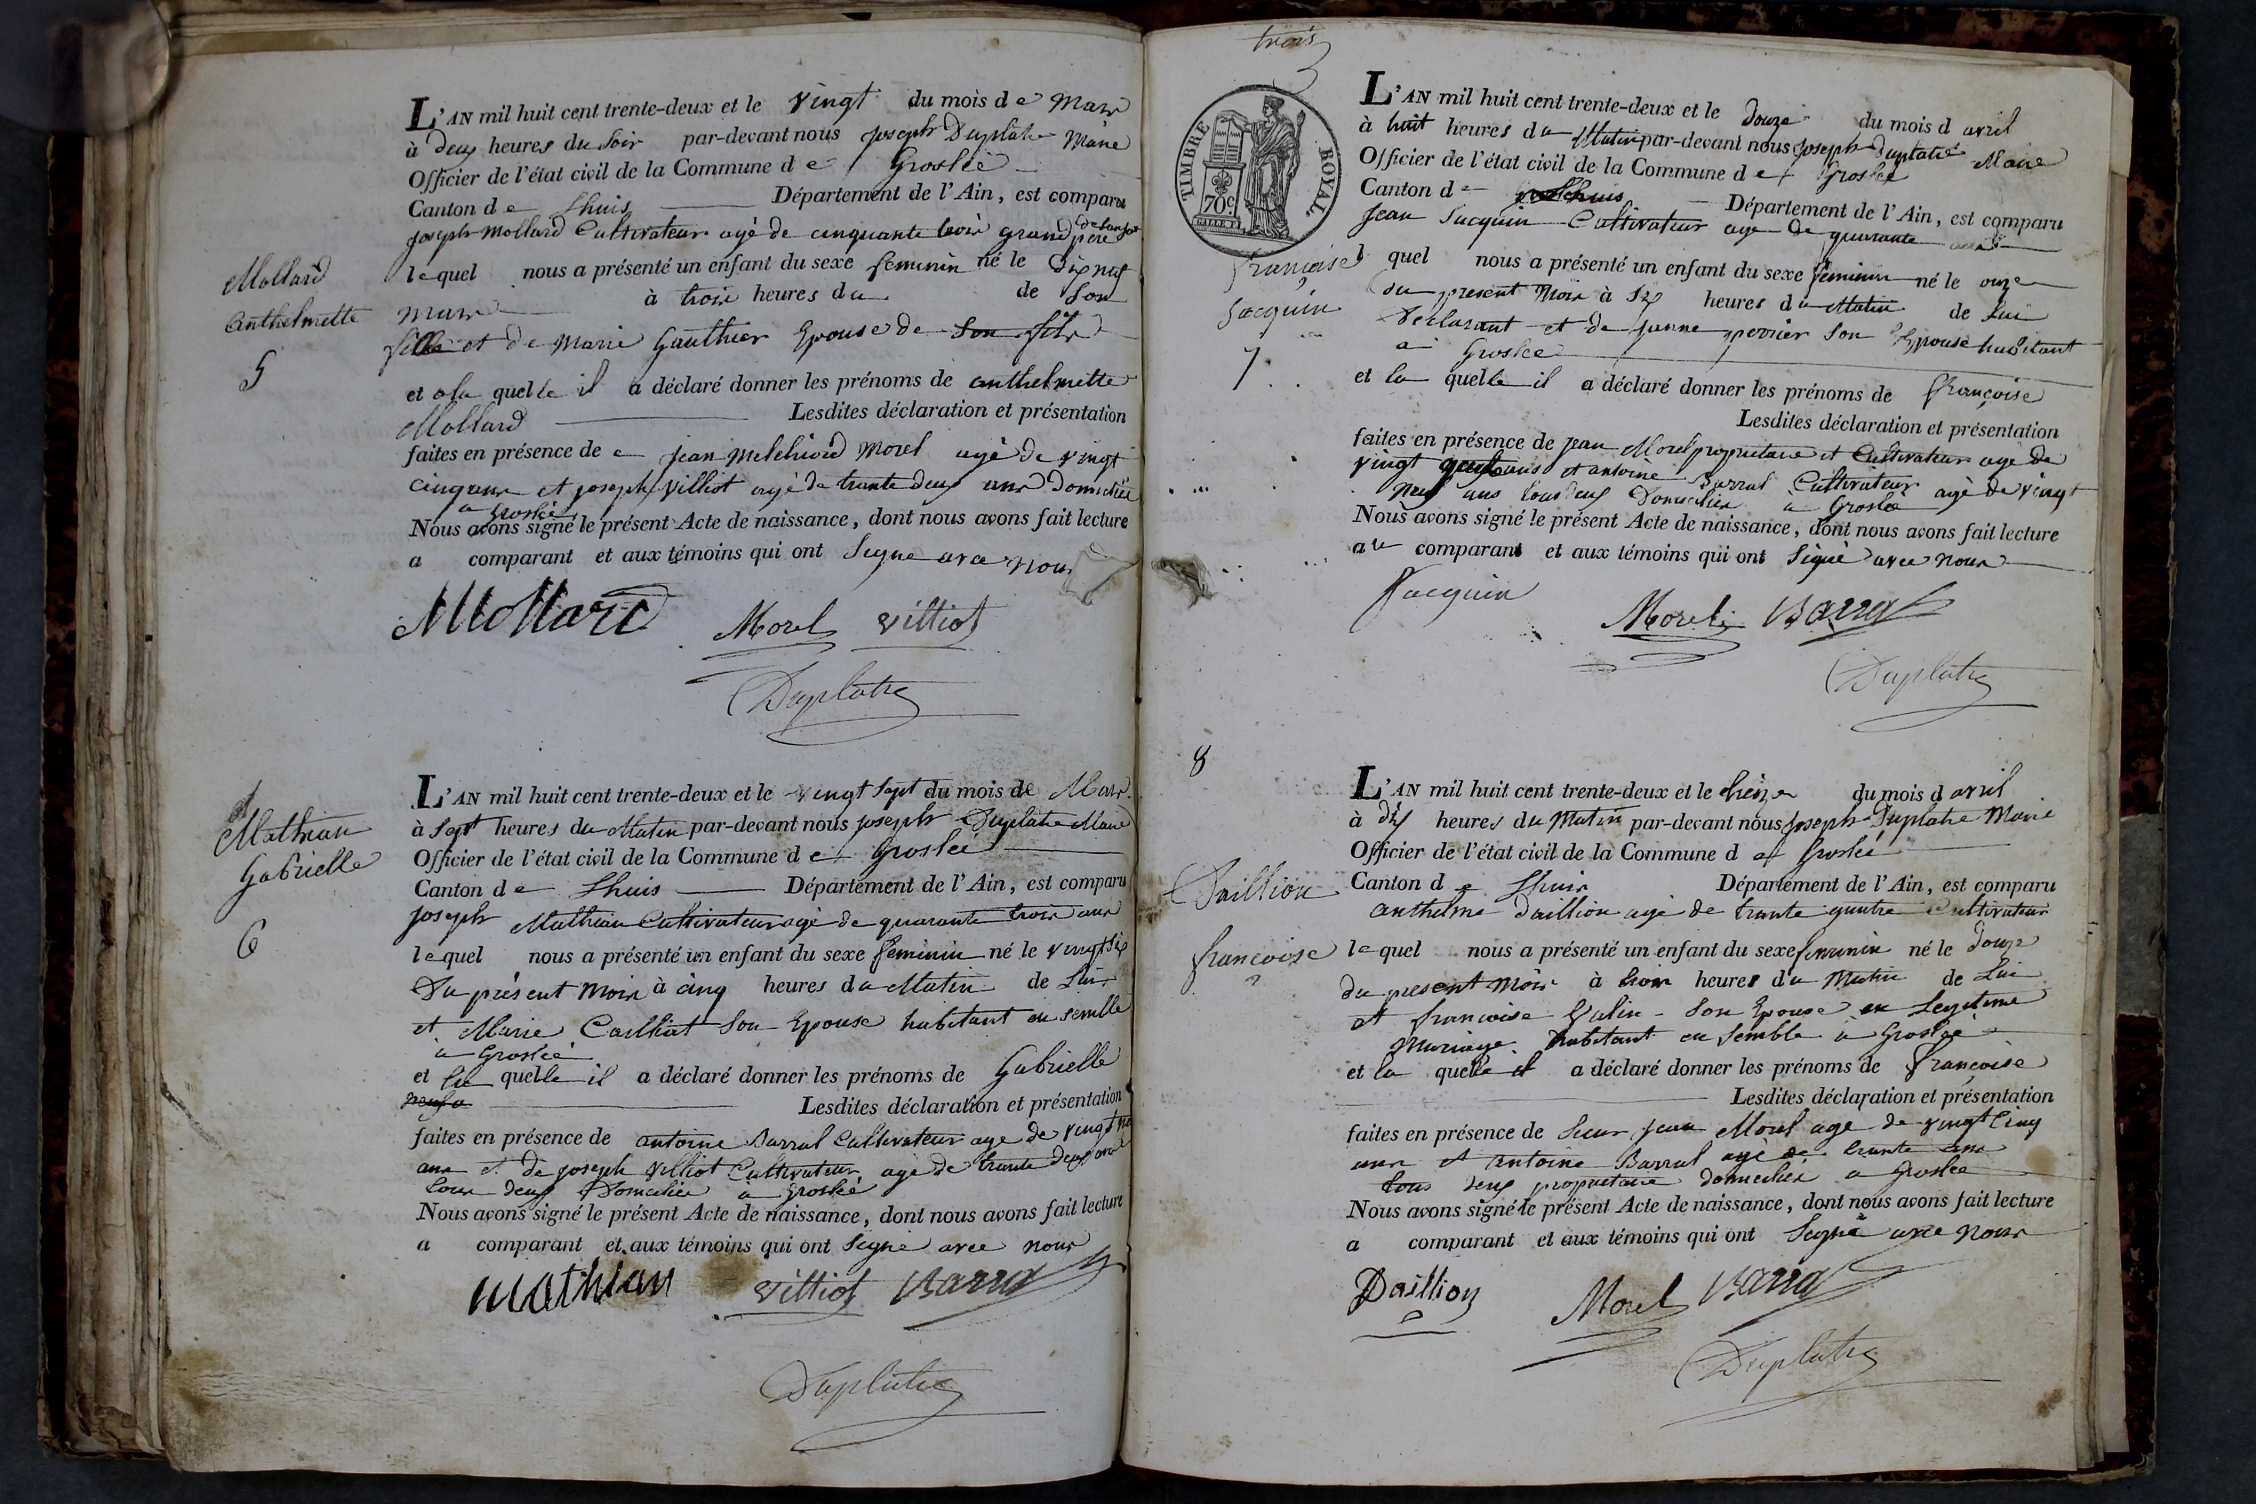 L'AN mil huit cent trente-deux et le vingt du mois de Mars
à deux heures du Soir par-devant nous joseph Duplatre Maire
Officier de l'état civil de la Commune de Groslée
Canton de Lhuis Département de l'Ain, est comparu
joseph Mollard Cultivateur agé de cinquante trois grand père
Mollard
Anthelmette
5
lequel nous a présenté un enfant du sexe feminin né le dix neuf
Mars à trois heures du de Son
fille et de Marie Gauthier Epouse de Son fils
et a la quelle il a déclaré donner les prénoms de anthelmette
Mollard Lesdites déclaration et présentation
faites en présence de jean Melchiord Morel agé de vingt
cinq ans et joseph Villiot agé de trante deux ans Domiciliés
a Groslée
Nous avons signé le présent Acte de naissance, dont nous avons fait lecture
a comparant et aux témoins qui ont Signe avec nous
Mollard Morel villiot
Duplatre
Mathian
Gabrielle
6
L'AN mil huit cent trente-deux et le vingt Sept du mois de Mars
à Sept heures du Matin par-devant nous joseph Duplatre Maire
Officier de l'état civil de la Commune de Groslée
Canton de Lhuis Département de l'Ain, est comparu
joseph Mathian Cultivateur agé de quarante trois ans
lequel nous a présenté un enfant du sexe feminin né le vingt Six
Du présent Mois à cinq heures du Matin de Lui
et Marie Cailliat Son Epouse habitant en semble
a Groslée
et la quelle il a déclaré donner les prénoms de Gabrielle
Lesdites déclaration et présentation
faites en présence de antoine Barral Cultivateur age de vingt
ans et de joseph Villiot Cultivateur agé de trante deux ans
tous deux Domicilies a Groslée
Nous avons signé le présent Acte de naissance, dont nous avons fait lecture
a comparant et aux témoins qui ont Signé avec nous
mathian villiot Barral
Duplatre
trois
TIMBRE ROYAL.
70c.
L'AN mil huit cent trente-deux et le douze du mois d avril
à huit heures du Matin par-devant nous joseph Duplatre Maire
Officier de l'état civil de la Commune de Groslée
Canton de Lhuis Département de l'Ain, est comparu
Jean Jacquin Cultivateur age de quarante ans
françoise
Jacquin
7
quel nous a présenté un enfant du sexe feminin né le onze
du present Mois à Six heures du Matin de Lui
Declarant et de janne perrier Son Epouse habitant
a Groslée
et la quelle il a déclaré donner les prénoms de françoise
Lesdites déclaration et présentation
faites en présence de jean Morel proprietaire et Cultivateur age de
vingt ans et antoine Barral Cultivateur agé de vingt
neuf ans tous deux Domicilies à Groslée
Nous avons signé le présent Acte de naissance, dont nous avons fait lecture
au comparant et aux témoins qui ont Signé avec nous
Jacquin Morel Barral
Duplatre
8
Daillion
françoise
L'AN mil huit cent trente-deux et le treize du mois d avril
à dix heures du Matin par-devant nous joseph Duplatre Maire
Officier de l'état civil de la Commune de Groslée
Canton de Lhuis Département de l'Ain, est comparu
anthelme Daillion agé de trante quatre Cultivateur
lequel nous a présenté un enfant du sexe feminin né le douze
du present mois à trois heures du Matin de Lui
et françoise Son Epouse en Legitime
Mariage habitant en semble a Groslée
et la quelle il a déclaré donner les prénoms de françoise
Lesdites déclaration et présentation
faites en présence de Sieur jean Morel age de vingt Cinq
ans et antoine Barral agé de trante ans
tous deux proprietaire domiciliés a Groslée
Nous avons signé le présent Acte de naissance, dont nous avons fait lecture
a comparant et aux témoins qui ont Signé avec nous
Daillion Morel Barral
Duplatre